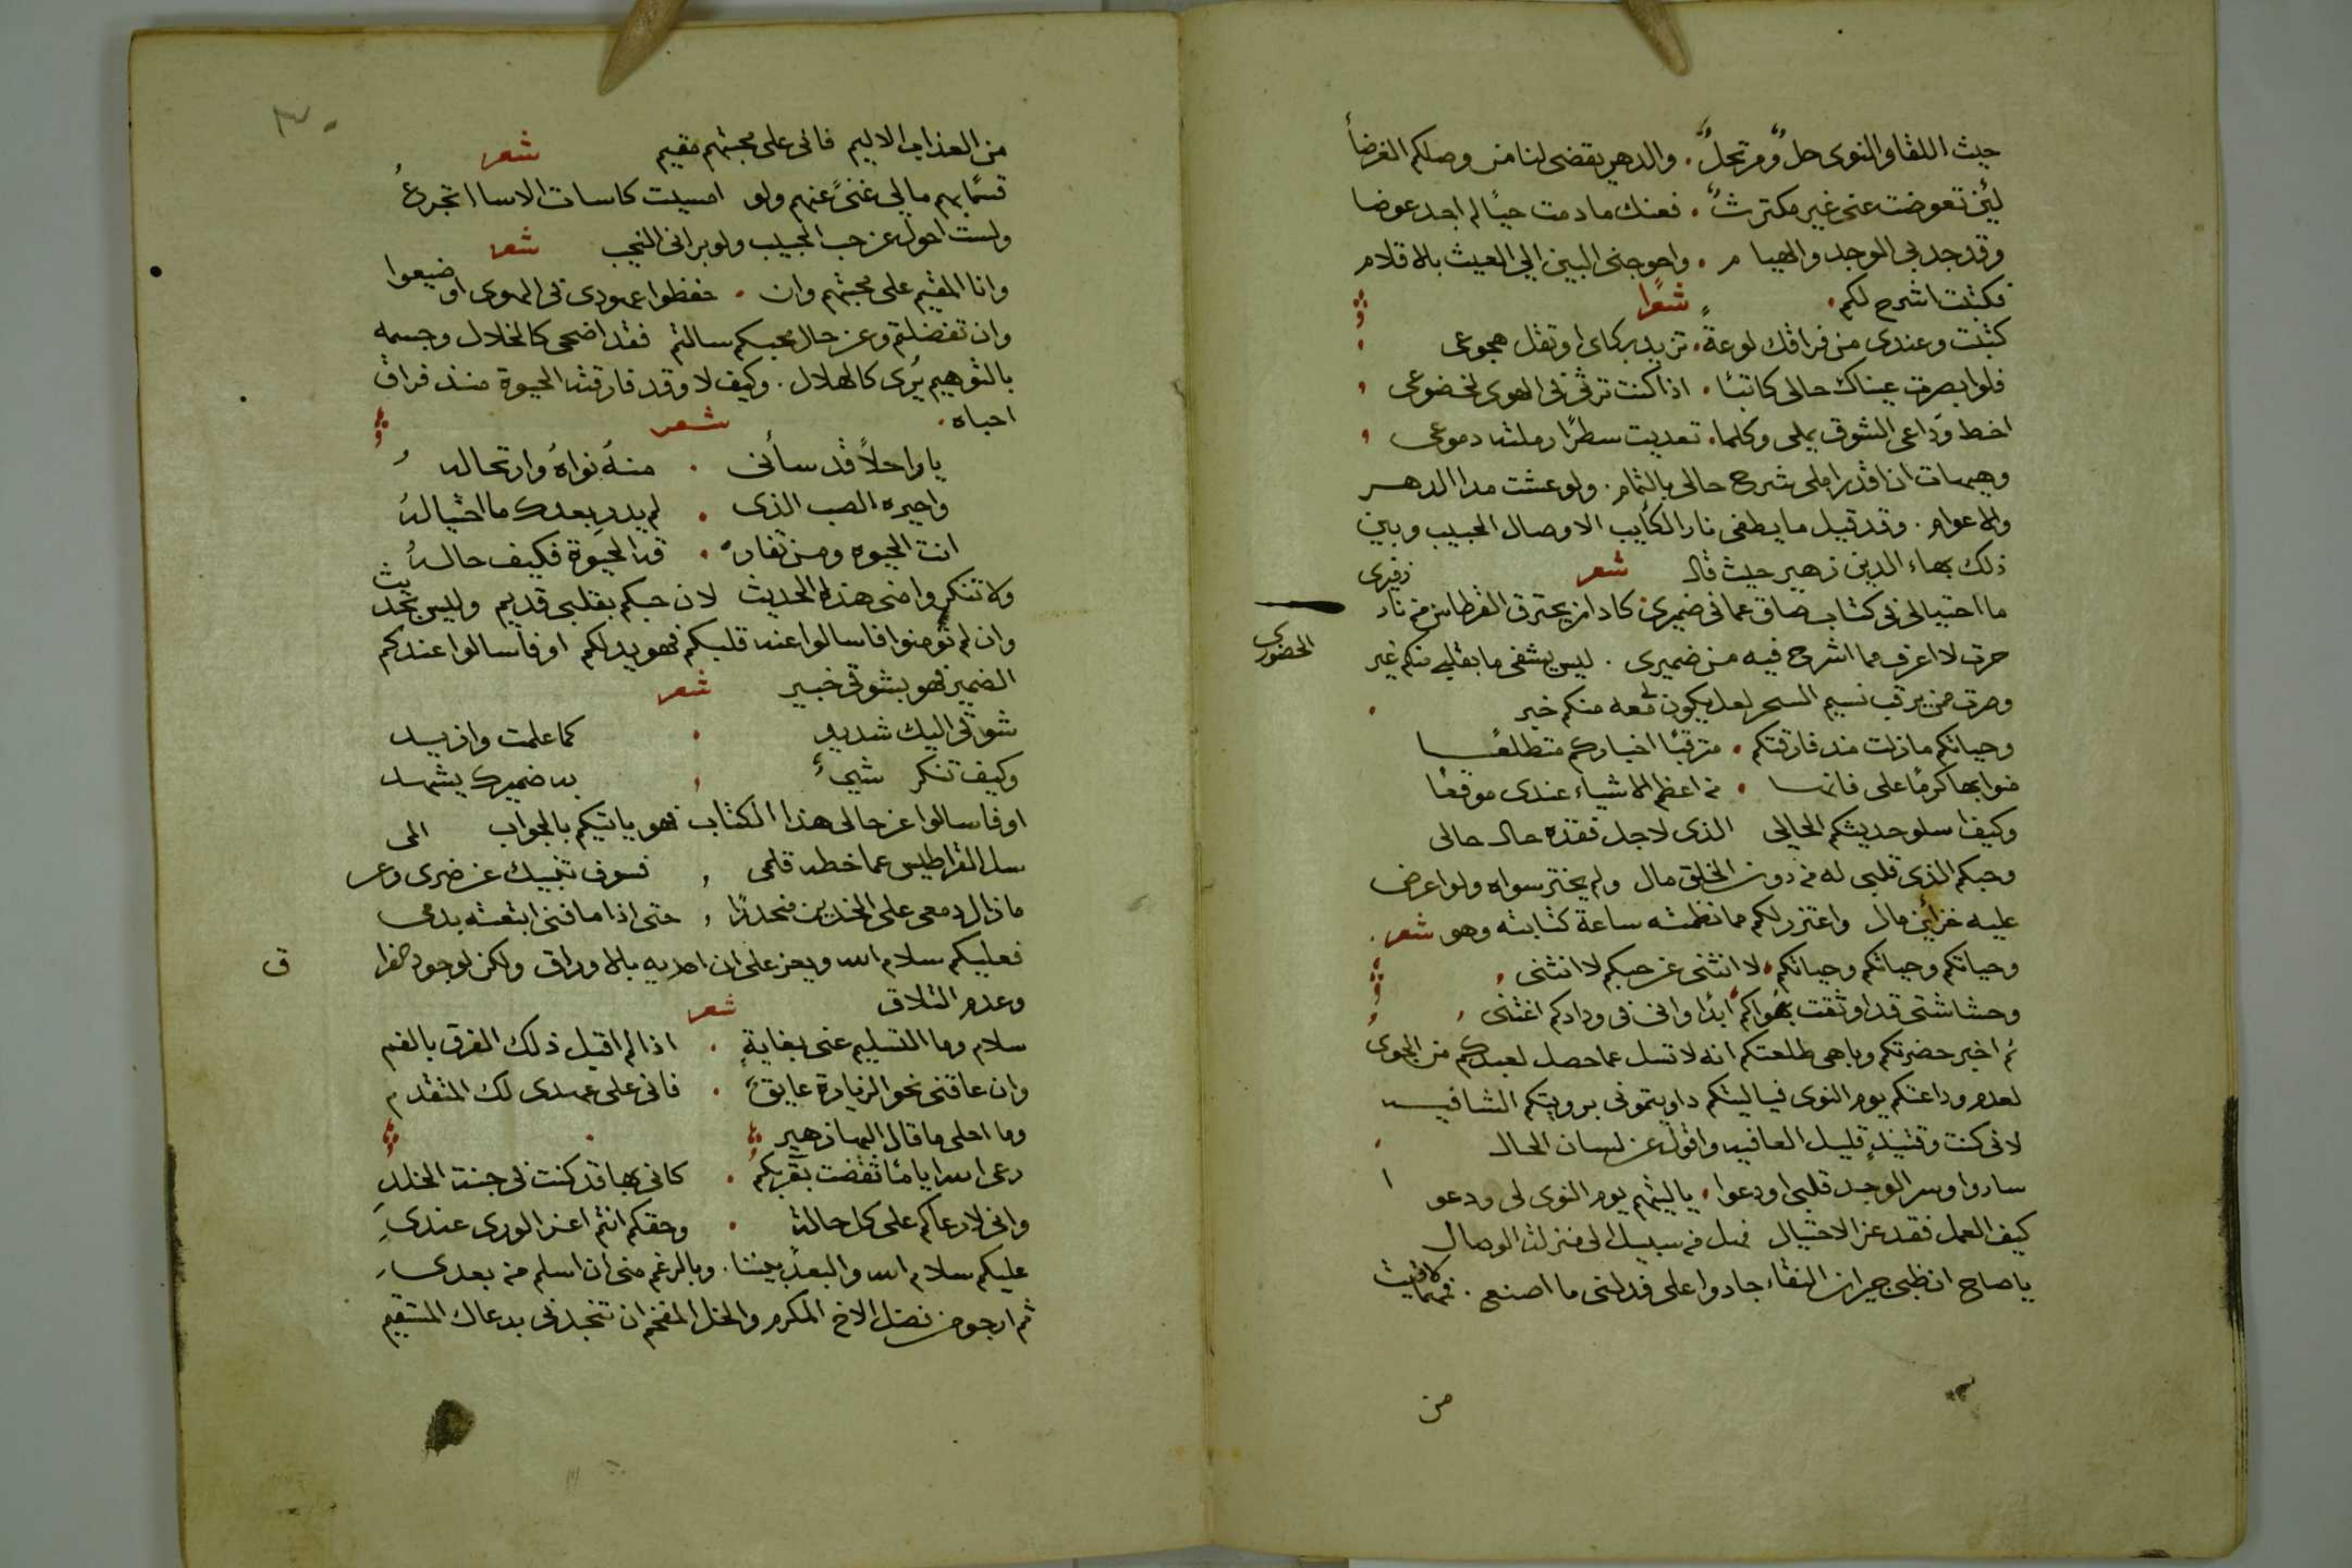 حيث اللقا والنوى حلٌ ومرتحلٌ . والدهر يقضى لنا من وصلكم الغرضاً
لئن تعوضت عنى غير مكترثٌ . فعنك مادمت حيًا لم اجد عوضا
وقد جد بى الوجد والهيام . واحوجنى البين الي العيث بالاقلام
فكتبت اشرح لكم . شعرًا
كتبت وعندى من فراقك لوعةٍ . تزيد بكاى او تقل هجوعى
فلو ابصرت عيناك حالى كاتبًا . اذا كنت ترثى فى الهوى لخضوعى
اخط وداعى الشوق يملى وكلما . تعديت سطرًا رملته دموعى
وهيهات ان اقدر املى شرح حالى بالتمام . ولو عشت مدا الدهر
والاعوام . وقد قيل ما يطفى نار الكايب الا وصال الحبيب وبين
ذلك بهاء الدين زهير حيث قال شعر
ما احتيالى فى كتاب ضاق عما فى ضميرى كاد ان يحترق القرطاس من نار زفيرى
حرت لا اعرف مما اشرح فيه من ضميرى . ليس يشفى ما بقلبى منكم غير الحضورى
وصرت من يرقب نسيم السحر لعل يكون معه منكم خبر
وحياتكم مازلت مند فارقتكم . مترقبًا اخباركم متطلعًا
منوا بها كرمًا على فانها . من اعظم الاشياء عندى موقعًا
وكيف اسلو حديثكم الحالي الذى لاجل فقده حال حالى
وحبكم الذى قلبى له من دون الخلق مال ولم يختر سواه ولو اعرض
عليه خزاين مال واعتزر لكم مما نظمته ساعة كتابته وهو شعر .
وحياتكم وحياتكم وحياتكم . لا انثنى عن حبكم لا انثنى
وحشاشتى قد اوثقت بهواكم ابدًا وانى فى ودادكم اغتنى
ثم اخبر حضرتكم وباهى طلعتكم انه لا تسل عما حصل لعبدكم من الجوى
لعدم وداعتكم يوم النوى فياليتكم داويتمونى برويتكم الشافيه
لانى كنت وقتيذٍ قليل العافيه واقول عن لسان الحال
ساروا وسر الوجد قلبى اودعوا . ياليتهم يوم النوى لى ودعو
كيف العمل فقد عز الاحتيال فهل من سبيل الى منزلة الوصال
يا صاح ان ظبى جيران النقاء جادوا على فدلنى ما اصنع .
من
من العذاب الاليم فانى على محبتهم مقيم شعر
قسمًا بهم مالي غنىً عنهم ولو امسيت كاسات الاسا اتجرعُ
ولست احول عن حب الحبيب ولو برانى النحيب شعر
وانا المقيم على محبتهم وان . حفظوا عهودى فى الهوى او ضيعوا
وان تفضلتم وعن حال محبكم سالتم فقد اضحى كالخلال وجسمه
بالتوهيم يُرى كالهلال . وكيف لا وقد فارقته الحيوة منذ فراق
احباه . شعر
يا راحلاً قد سأنى . منهُ نواهُ وارتحاله
واجبره الصب الذى . لم يدرِ بعدك ما احتيالهُ
انت الحيوه ومن تفارُ . قه الحيوة فكيف حالهُ
ولا تنكروا منى هذا الحديث لان حبكم بقلبى قديم وليس بحديث
وان لم تؤمنوا فاسالوا عنه قلبكم فهو يدلكم او فاسالوا عندكم
الضمير فهو بشوقى خبير شعر
شوقى اليك شديد . كما علمت وازيد
وكيف تنكر شيءٌ به ضميرك يشهد
او فاسالوا عن حالى هذا الكتاب فهو ياتيكم بالجواب
سل القراطيس عما خطه قلمى , فسوف تنبيك عن ضرى وعن المى
مازال دمعى على الخدين منحدرًا , حتى اذا ما فنى ابتعته بدمى
فعليكم سلام الله ويعز على ان اهديه بالاوراق ولكن لوجود الفراق
وعدم التلاق شعر
سلام وما التسليم عنى بغايةٍ . اذا لم اقبل ذلك الفرق بالفم
وان عاقنى نحو الزيارة عايقٌ . فانى على عهدى لك المتقدم
وما احلى ما قال البها زهير
رعى الله ايامًا تقضت بقربكم . كانى بها قد كنت فى جنة الخلدِ
وانى لارعاكم على كل حالة . وحقكم انتم اعز الورى عندىِ
عليكم سلام الله والبعد بيننا . وبالرغم منى ان اسلم من بعدى
ثم ارجو من فضل الاخ المكرم والخل المفخم ان تنجدنى بدعاك المستقيم